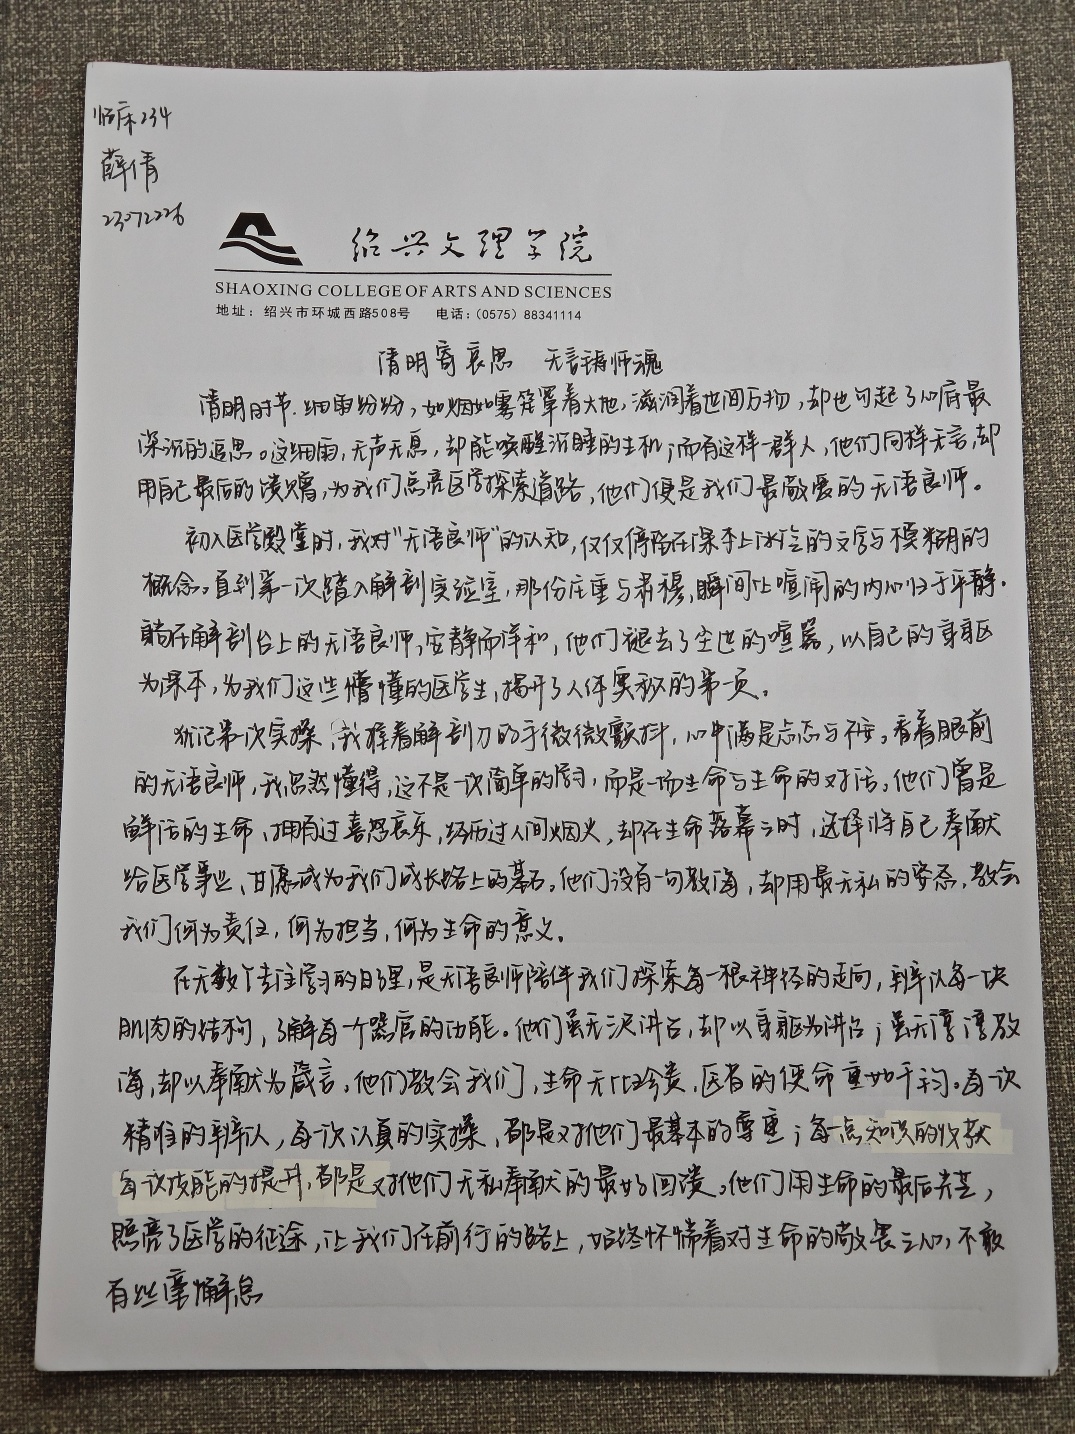 临床234
薛倩
23072226
绍兴文理学院
SHAOXING COLLEGE OF ARTS AND SCIENCES
地址：绍兴市环城西路508号 电话：(0575) 88341114
清明寄哀思 无言铸师魂
清明时节，细雨纷纷，如烟如雾笼罩着大地，滋润着世间万物，却也勾起了心底最
深沉的追思。这细雨，无声无息，却能唤醒沉睡的生机；而有这样一群人，他们同样无言，却
用自己最后的馈赠，为我们点亮医学探索道路，他们便是我们最敬爱的无语良师。
初入医学殿堂时，我对"无语良师"的认知，仅仅停留在课本上冰冷的文字与模糊的
概念。直到第一次踏入解剖实验室，那份庄重与肃穆，瞬间让喧闹的内心归于平静。
躺在解剖台上的无语良师，安静而详和，他们褪去了尘世的喧嚣，以自己的身躯
为课本，为我们这些懵懂的医学生，揭开了人体奥秘的第一页。
犹记第一次实操，我握着解剖刀的手微微颤抖，心中满是忐忑与不安。看着眼前
的无语良师，我忽然懂得，这不是一次简单的学习，而是一场生命与生命的对话。他们曾是
鲜活的生命，拥有过喜怒哀乐，经历过人间烟火，却在生命落幕之时，选择将自己奉献
给医学事业，甘愿成为我们成长路上的基石。他们没有一句教诲，却用最无私的姿态，教会
我们何为责任，何为担当，何为生命的意义。
在无数个专注学习的日子里，是无语良师陪伴我们探索每一根神经的走向，辨认每一块
肌肉的结构，了解每一个器官的功能。他们虽无三尺讲台，却以身躯为讲台；虽无谆谆教
诲，却以奉献为箴言。他们教会我们，生命无比珍贵，医者的使命重如千钧。每一次
精准的辨认，每一次认真的实操，都是对他们最基本的尊重；每一点知识的收获
每一次技能的提升，都是对他们无私奉献的最好回馈。他们用生命的最后光芒，
照亮了医学的征途，让我们在前行的路上，始终怀揣着对生命的敬畏之心，不敢
有丝毫懈怠